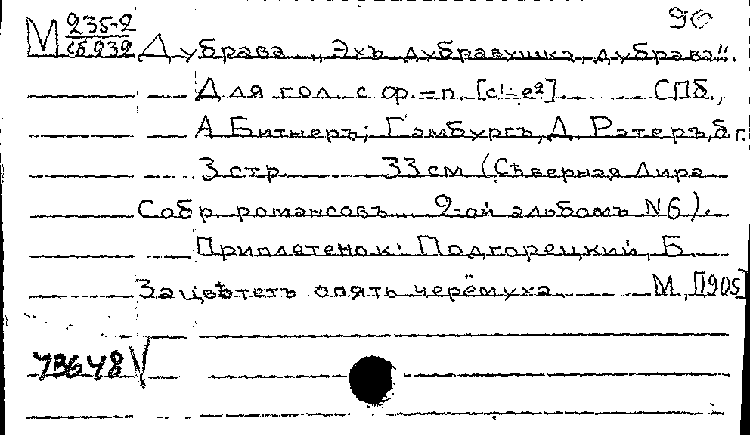 М 235-2 90
сб.939 Дубрава. „Эхъ дубравушка, дубрава!!".
Для гол. с ф.=п. [c¹-e²]. СПб.,
А. Битнеръ; Гамбургъ, Д. Ратеръ, б.г.
3 стр. 33 см (Сѣверная Лира.
Собр. романсовъ. 2-ой альбомъ N 6).
Приплетенок: Подгорецкий, Б.
Зацвѣтетъ опять черёмуха. М., [1905]